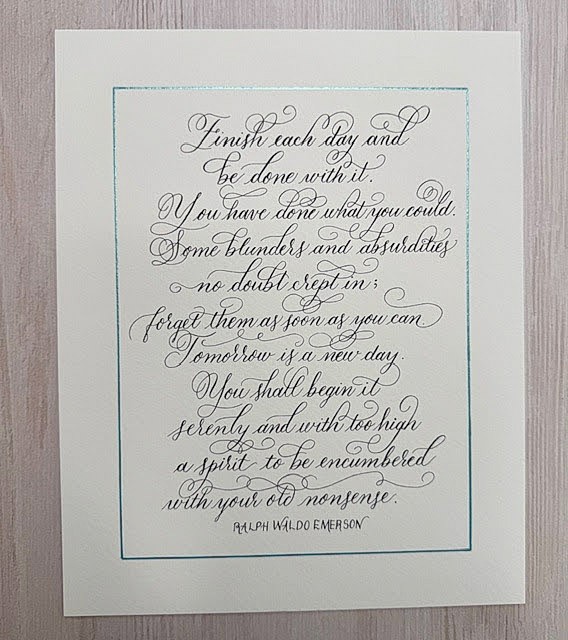 Finish each day and
be done with it.
You have done what you could.
Some blunders and absurdities
no doubt crept in;
forget them as soon as you can.
Tomorrow is a new day.
You shall begin it
serenly and with too high
a spirit to be encumbered
with your old nonsense.
RALPH WALDO EMERSON